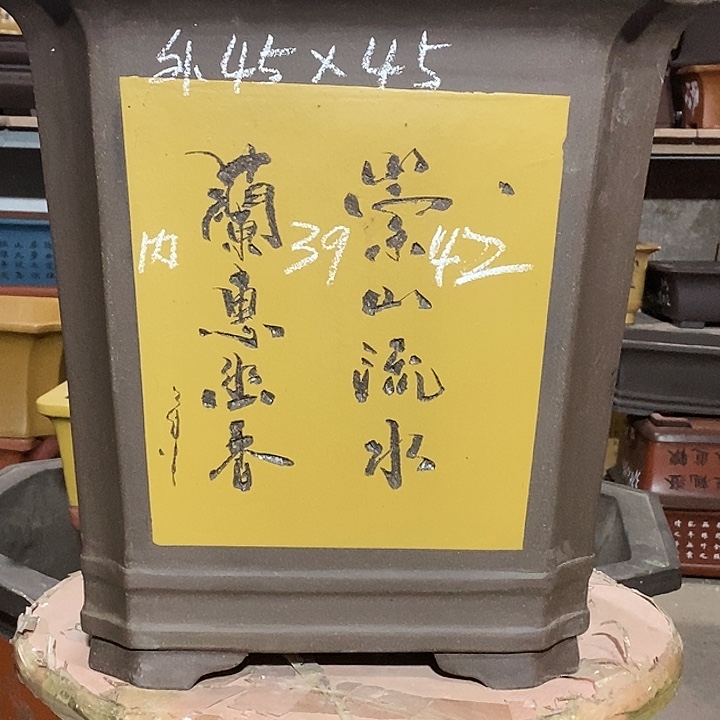 外45×45
内 39 42
崇山流水
蘭惠幽香